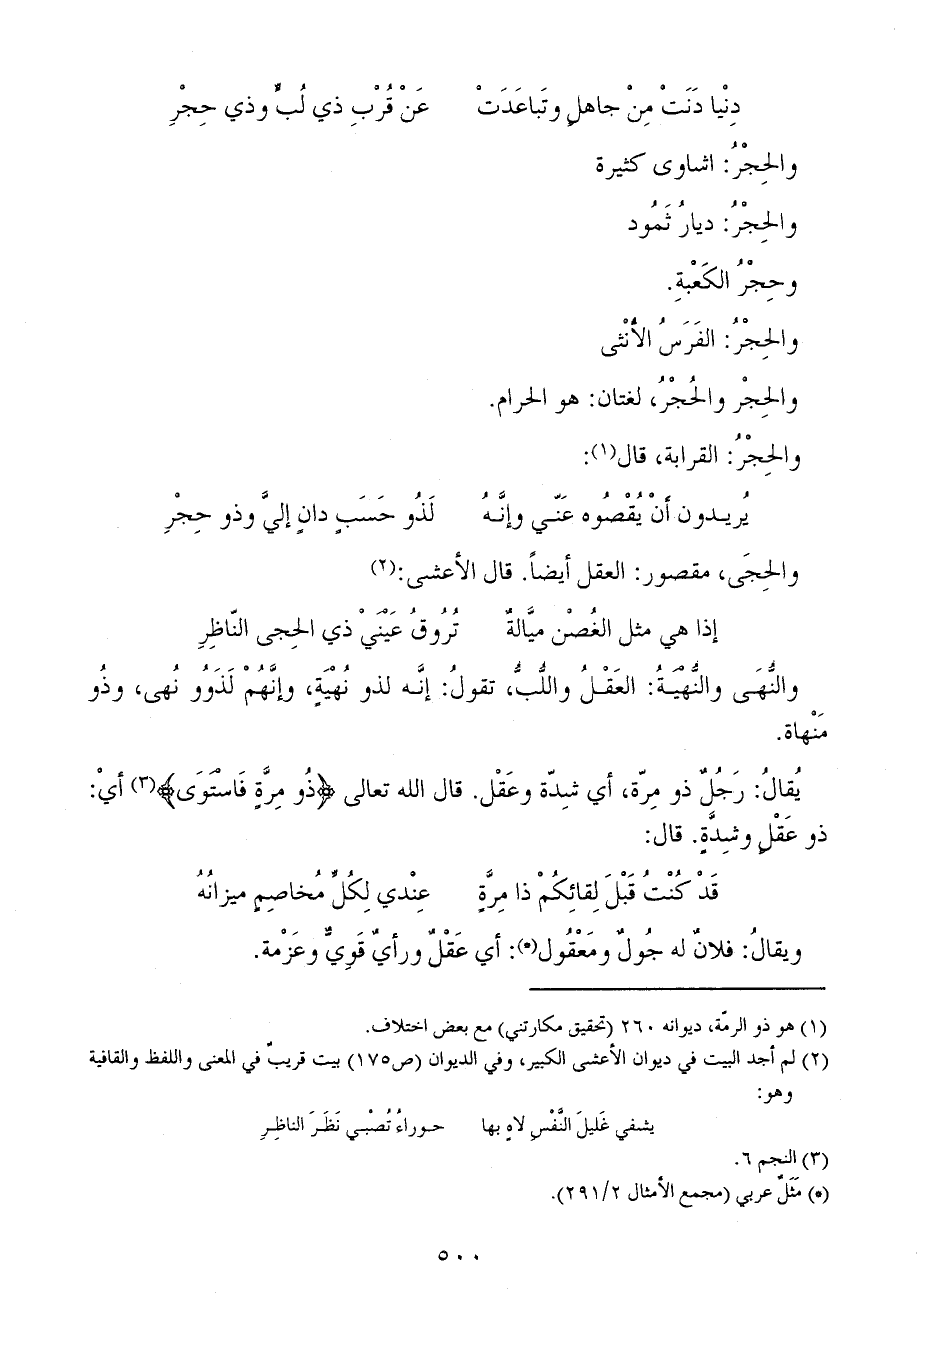 دِنْيا دَنَتْ مِنْ جاهلٍ وتَباعَدَتْ عَنْ قُرْبِ ذي لُبٍّ وذي حِجْرِ
والحِجْرُ: اشاوى كثيرة
والحِجْرُ: ديارُ ثَمُود
وحِجْرُ الكَعْبَةِ.
والحِجْرُ: الفَرَسُ الأُنْثى
والحِجْر والحُجْرُ، لغتان: هو الحرام.
والحِجْرُ: القرابة، قال(١):
يُريدون أنْ يُقْصُوه عَنّي وإنَّهُ لَذُو حَسَبٍ دانٍ إليَّ وذو حِجْرِ
والحِجَى، مقصور: العقل أيضاً. قال الأعشى:(٢)
إذا هي مثل الغُصْن ميَّالةٌ تُروُقُ عَيْنَيْ ذي الحِجى النّاظِرِ
والنُّهَى والنُّهْيَةُ: العَقْلُ واللُّبُّ، تقولُ: إنَّه لذو نُهْيَةٍ، وإنَّهُمْ لَذَوُو نُهى، وذُو
مَنْهاة.
يُقالُ: رَجُلٌ ذو مِرّة، أي شِدّة وعَقْل. قال الله تعالى ﴿ذُو مِرَّةٍ فَاسْتَوَى﴾(٣) أيْ:
ذو عَقْلٍ وشِدَّةٍ. قال:
قَدْ كُنْتُ قَبْلَ لِقائِكُمْ ذا مِرَّةٍ عِنْدي لِكُلِّ مُخاصِمٍ ميزانُهُ
ويقالُ: فلانٌ له جُولٌ ومَعْقُول(*): أي عَقْلٌ ورأيٌ قَوِيٌّ وعَزْمة.
(١) هو ذو الرمّة، ديوانه ٢٦٠ (تحقيق مكارتني) مع بعض اختلاف.
(٢) لم أجد البيت في ديوان الأعشى الكبير، وفي الديوان (ص١٧٥) بيت قريبٌ في المعنى واللفظ والقافية
وهو:
يشفي غَليلَ النَّفْسِ لاهٍ بها حوراءُ تُصْبي نَظَرَ الناظِرِ
(٣) النجم ٦.
(*) مَثَلٌ عربي (مجمع الأمثال ٢٩١/٢).
٥٠٠